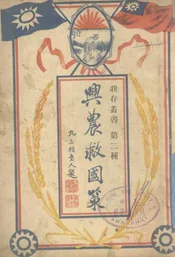 我存叢書 第二種
興農救國策
九二相老人題